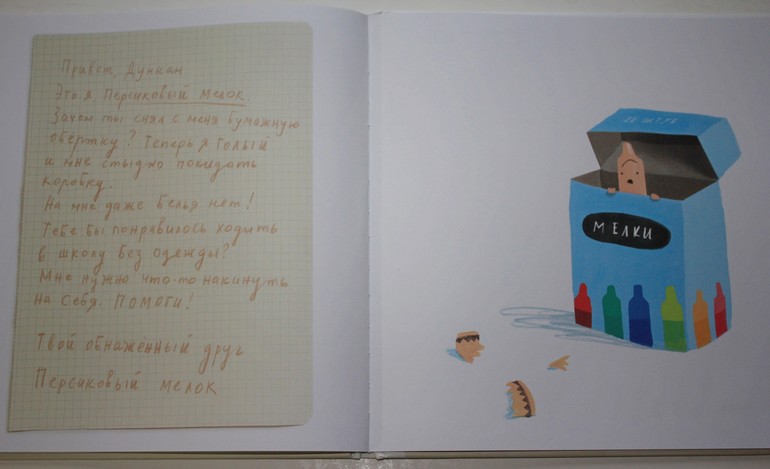 Привет, Дункан
Это я, Персиковый мелок.
Зачем ты снял с меня бумажную
обёртку? Теперь я голый
и мне стыдно покидать
коробку.
На мне даже белья нет!
Тебе бы понравилось ходить
в школу без одежды?
Мне нужно что-то накинуть
на себя. ПОМОГИ!
Твой обнажённый друг
Персиковый мелок
МЕЛКИ